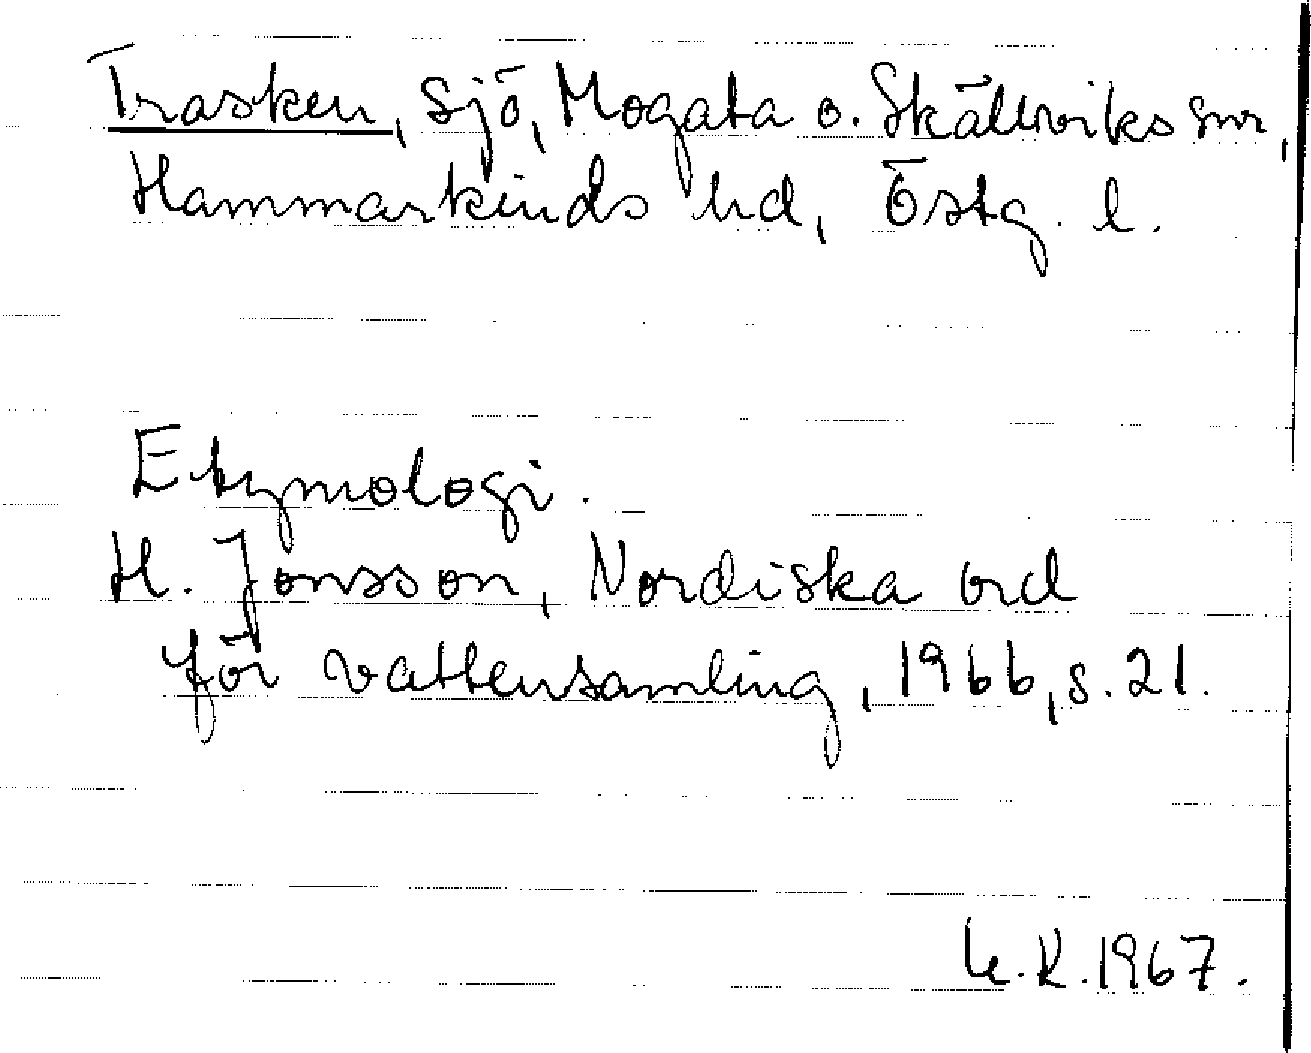 Trasken, sjö, Mogata o. Skällviks snr,
Hammarkinds hd, Östg. l.
Etymologi.
H. Jonsson, Nordiska ord
för vattensamling, 1966, s. 21.
K.R. 1967.